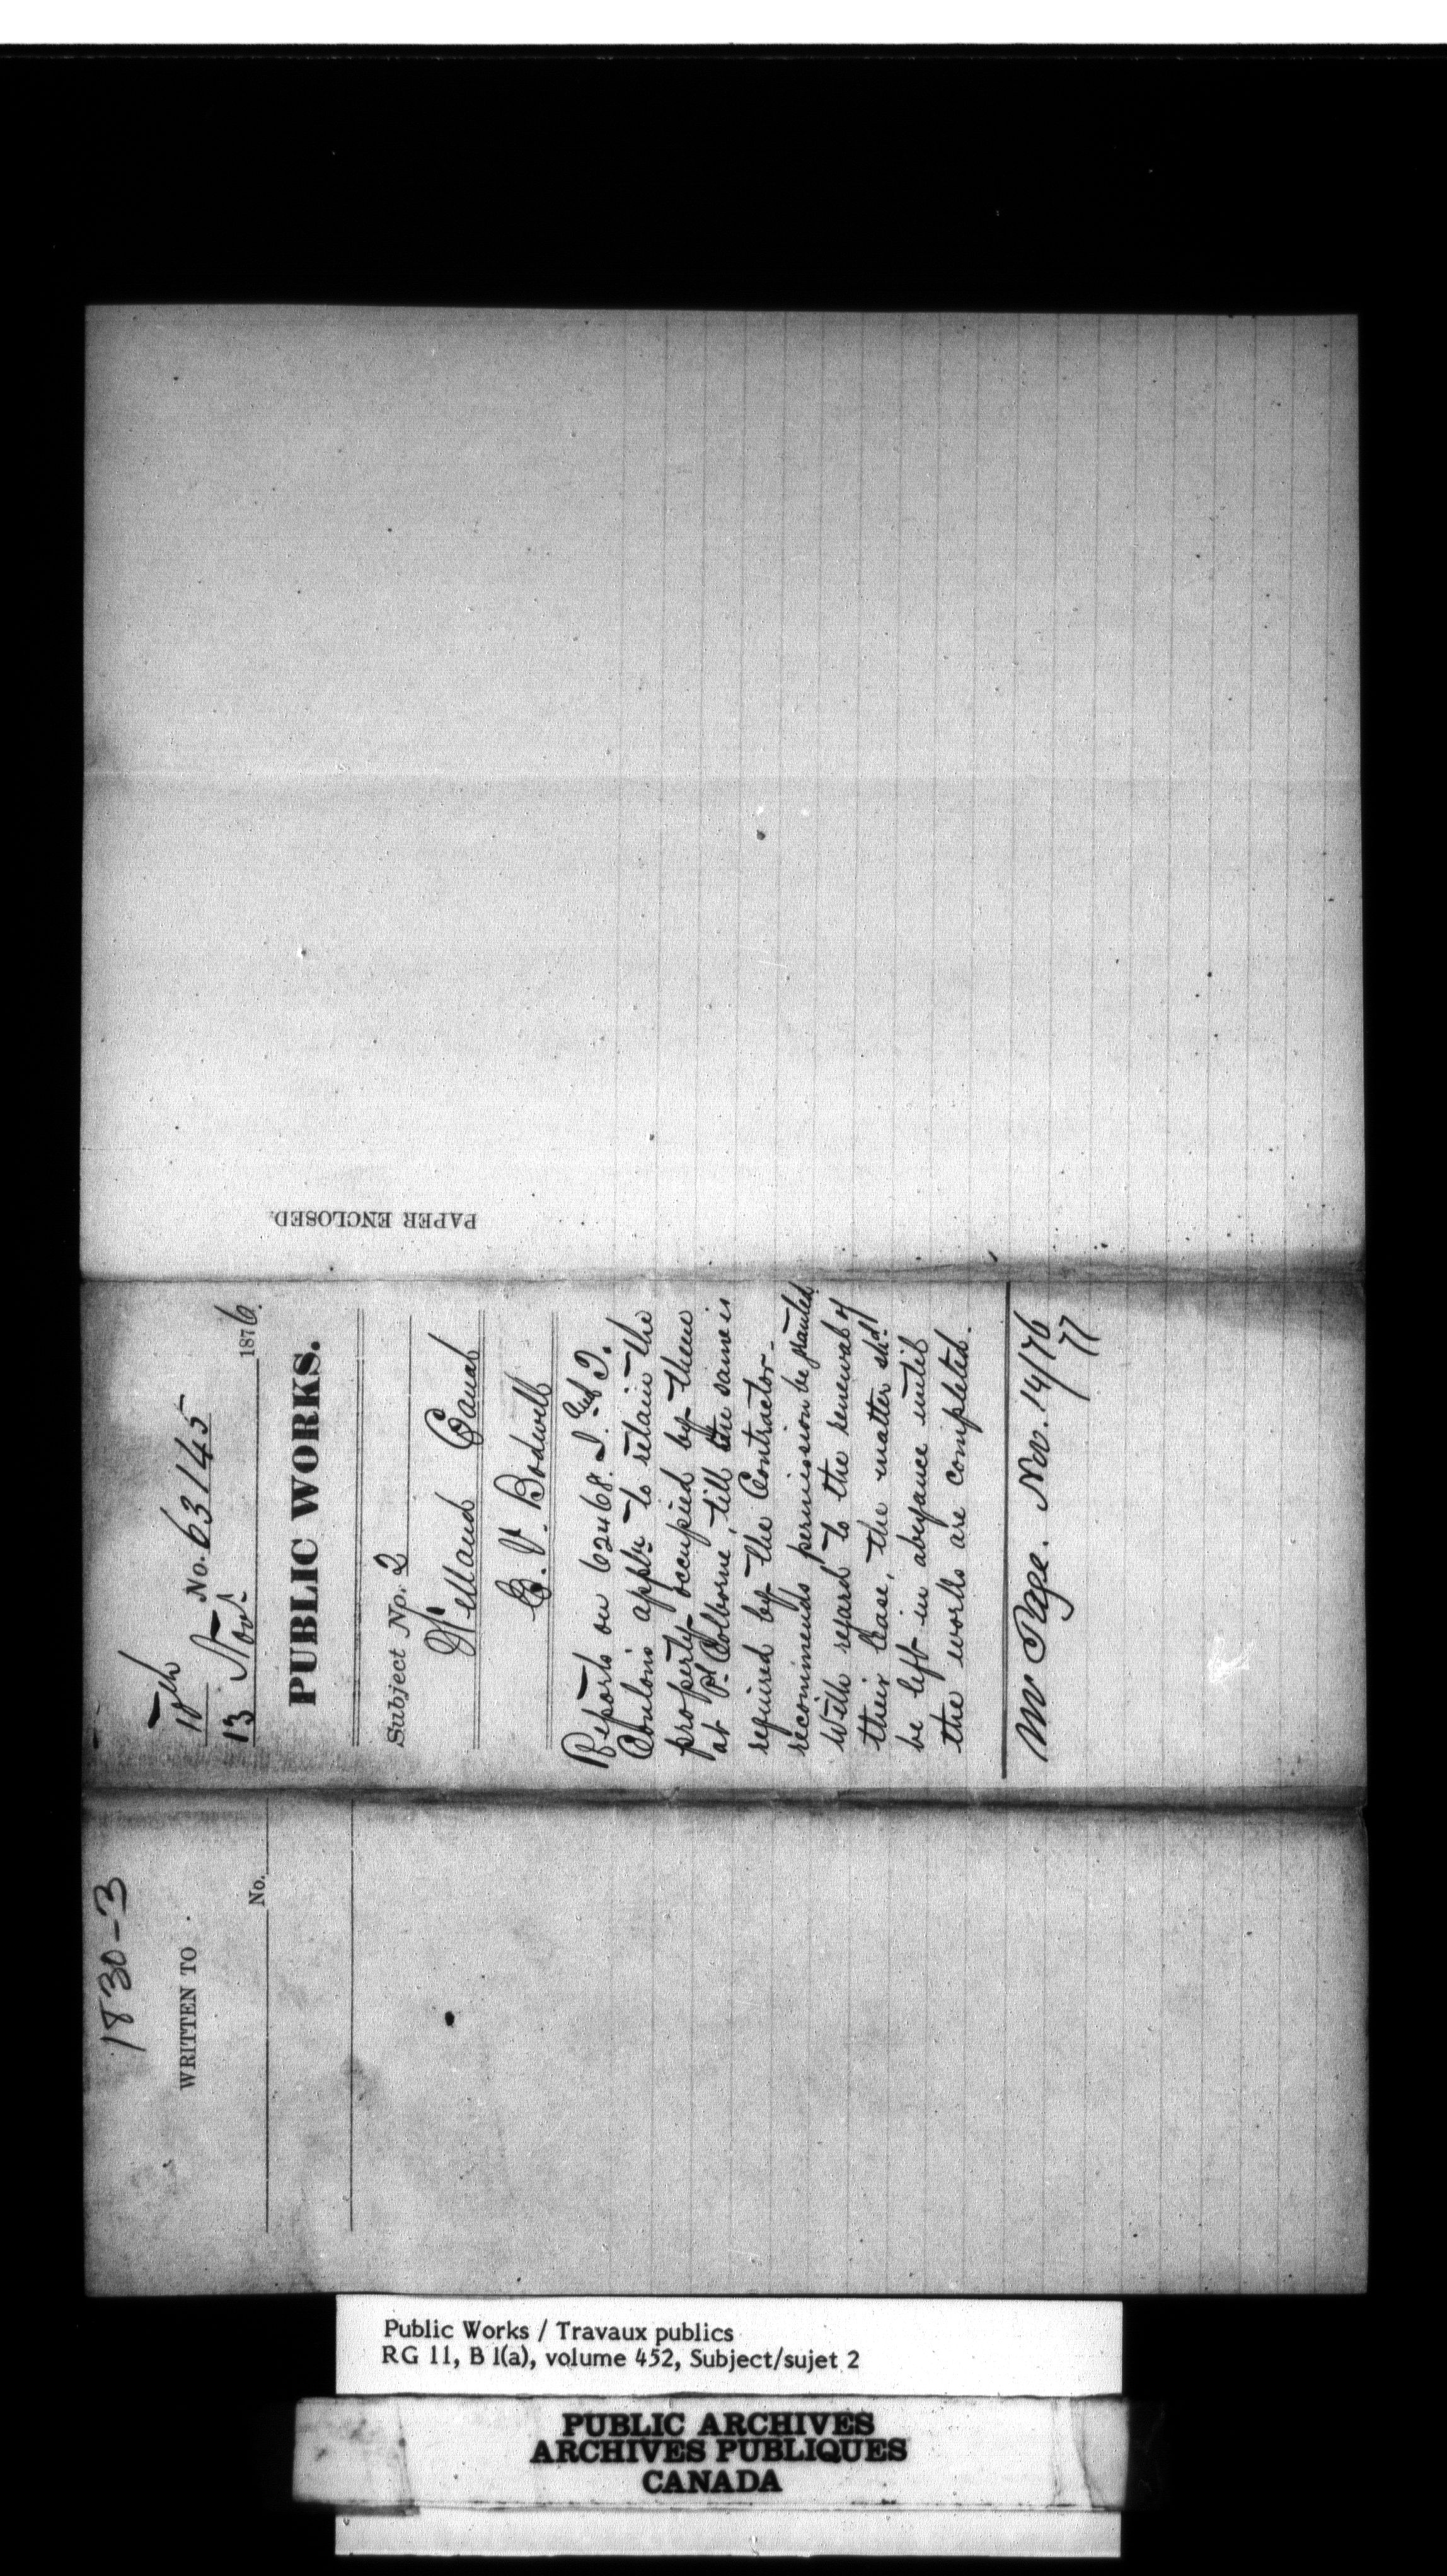 1830-3
WRITTEN TO
No.
No. 63145
13 Novr 1876.
PUBLIC WORKS.
Subject No. 2
Welland Canal
E. V. Bodwell
Reports on 62468.
appln to retain the
property occupied by them
at Pt Colborne, till the same is
required by the Contractor -
recommends permission be granted
With regard to the renewal of
their lease, the matter shd
be left in abeyance until
the works are completed.
Mr Page. Nov. 14/76
77
PAPER ENCLOSED.
Public Works / Travaux publics
RG 11, B 1(a), volume 452, Subject/sujet 2
PUBLIC ARCHIVES
ARCHIVES PUBLIQUES
CANADA